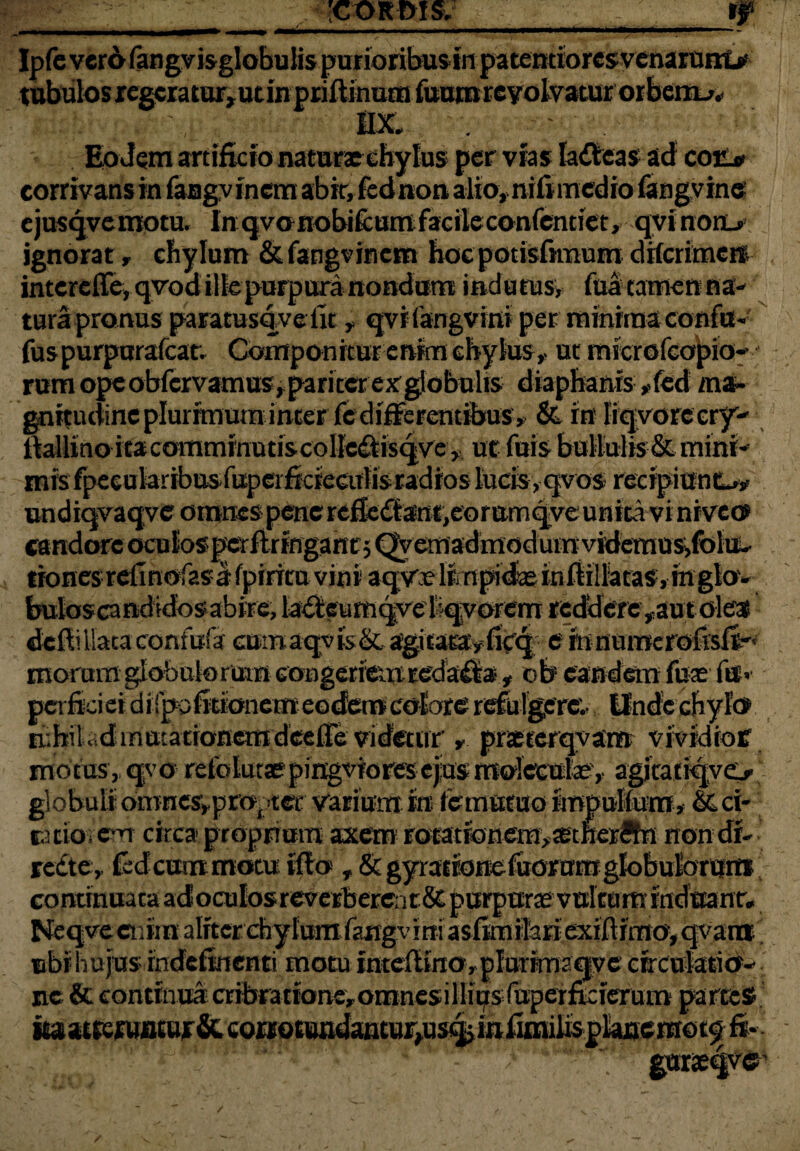 CORDIS. 17
Ipſe verò ſangvis globulis purioribus in patentiores venarum
tubulos regeratur, ut in priſtinum ſuum revolvatur orbem.
IIX.
Eodem artificio naturæ chylus per vias lacteas ad cor
corrivans in ſangvinem abit, ſed non alio, niſi medio ſangvine
ejusqve motu. In qvo nobiſcum facile conſentiet, qvi non
ignorat, chylum & ſangvinem hoc potisſimum diſcrimen
intereſſe, qvod ille purpurâ nondum indutus, ſuâ tamen na-
turâ pronus paratusqve ſit, qvi ſangvini per minima confu-
ſus purpuraſcat. Componitur enim chylus, ut microſcopio-
rum ope obſervamus, pariter ex globulis diaphanis, ſed ma-
gnitudine plurimum inter ſe differentibus, & in liqvore cry-
ſtallino ita comminutis collectisqve, ut ſuis bullulis & mini-
mis ſpecularibus ſuperficieculis radios lucis, qvos recipiunt,
undiqvaqve omnes pene reflectant, eorumqve unitâ vi niveo
candore oculos perſtringant; Qvemadmodum videmus, ſolu-
tiones reſinoſas à ſpiritu vini aqvæ limpidæ inſtillatas, in glo-
bulos candidos abire, lacteumqve liqvorem reddere, aut olea
deſtillata confuſa cum aqvis & agitata, ſicq́; e innumeroſisſi-
morum globulorum congeriem redacta, ob eandem ſuæ ſu-
perficiei diſpoſitionem eodem colore refulgere. Unde chylo
nihil ad mutationem deeſſe videtur, præterqvam vividior
motus, qvo reſolutæ pingviores ejus moleculæ, agitatiqve
globuli omnes, propter varium in ſe mutuo impulſum, & ci-
tatiorem circa proprium axem rotationem, ætherêm non di-
recte, ſed cum motu iſto, & gyratione ſuorum globulorum
continuata ad oculos reverberent & purpuræ vultum induant.
Neqve enim aliter chylum ſangvini asſimilari exiſtimo, qvam
ubi hujus indeſinenti motu inteſtino, plurimaqve circulatio-
ne & continuâ cribratione, omnes illius ſuperficierum partes
ita atteruntur & corrotundantur, usq́; in ſimilis plane motq; fi-
guræqve